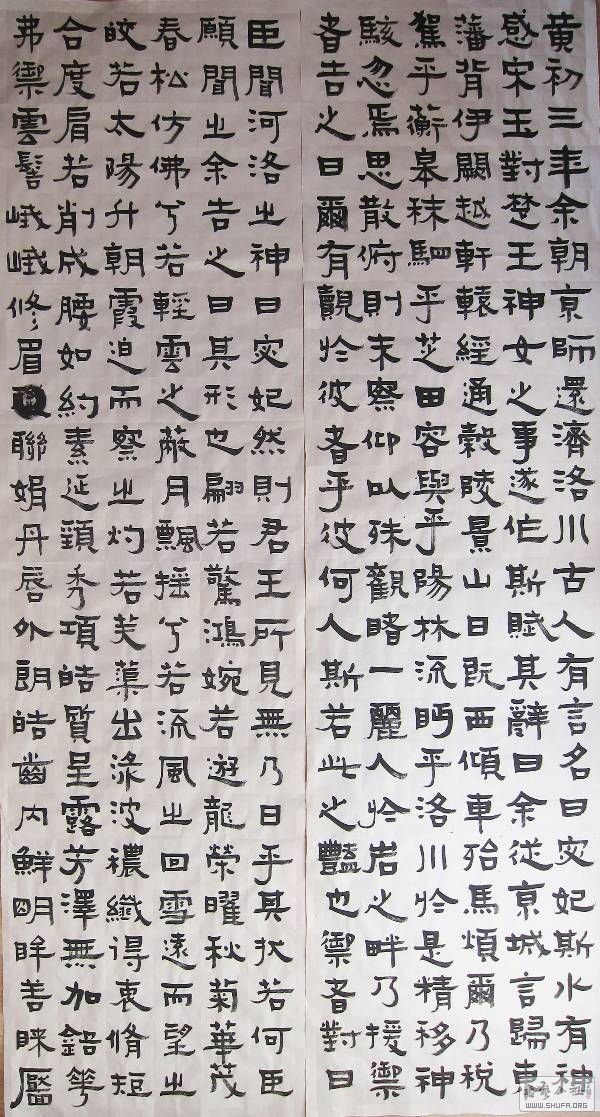 黄初三年余朝京師還濟洛川古人有言名曰宓妃斯水有神
感宋玉對楚王神女之事遂作斯賦其辭曰余從京城言歸東
藩背伊闕越軒轅經通穀陵景山日既西傾車殆馬煩爾乃税
駕乎蘅皋秣駟乎芝田容與乎陽林流眄乎洛川於是精移神
駭忽焉思散俯則未察仰以殊觀睹一麗人於岩之畔乃援禦
者告之曰爾有覿於彼者乎彼何人斯若此之豔也禦者對曰
臣聞河洛之神曰宓妃然則君王所見無乃日乎其狀若何臣
願聞之余告之曰其形也翩若驚鴻婉若遊龍榮曜秋菊華茂
春松仿佛兮若輕雲之蔽月飄摇兮若流風之回雪遠而望之
皎若太陽升朝霞迫而察之灼若芙蕖出淥波穠纖得衷脩短
合度肩若削成腰如約素延頸秀項皓質呈露芳澤無加鉛華
弗禦雲髻峨峨修眉聯娟丹唇外朗皓齒内鮮明眸善睞靨
WWW.SHUFA.ORG